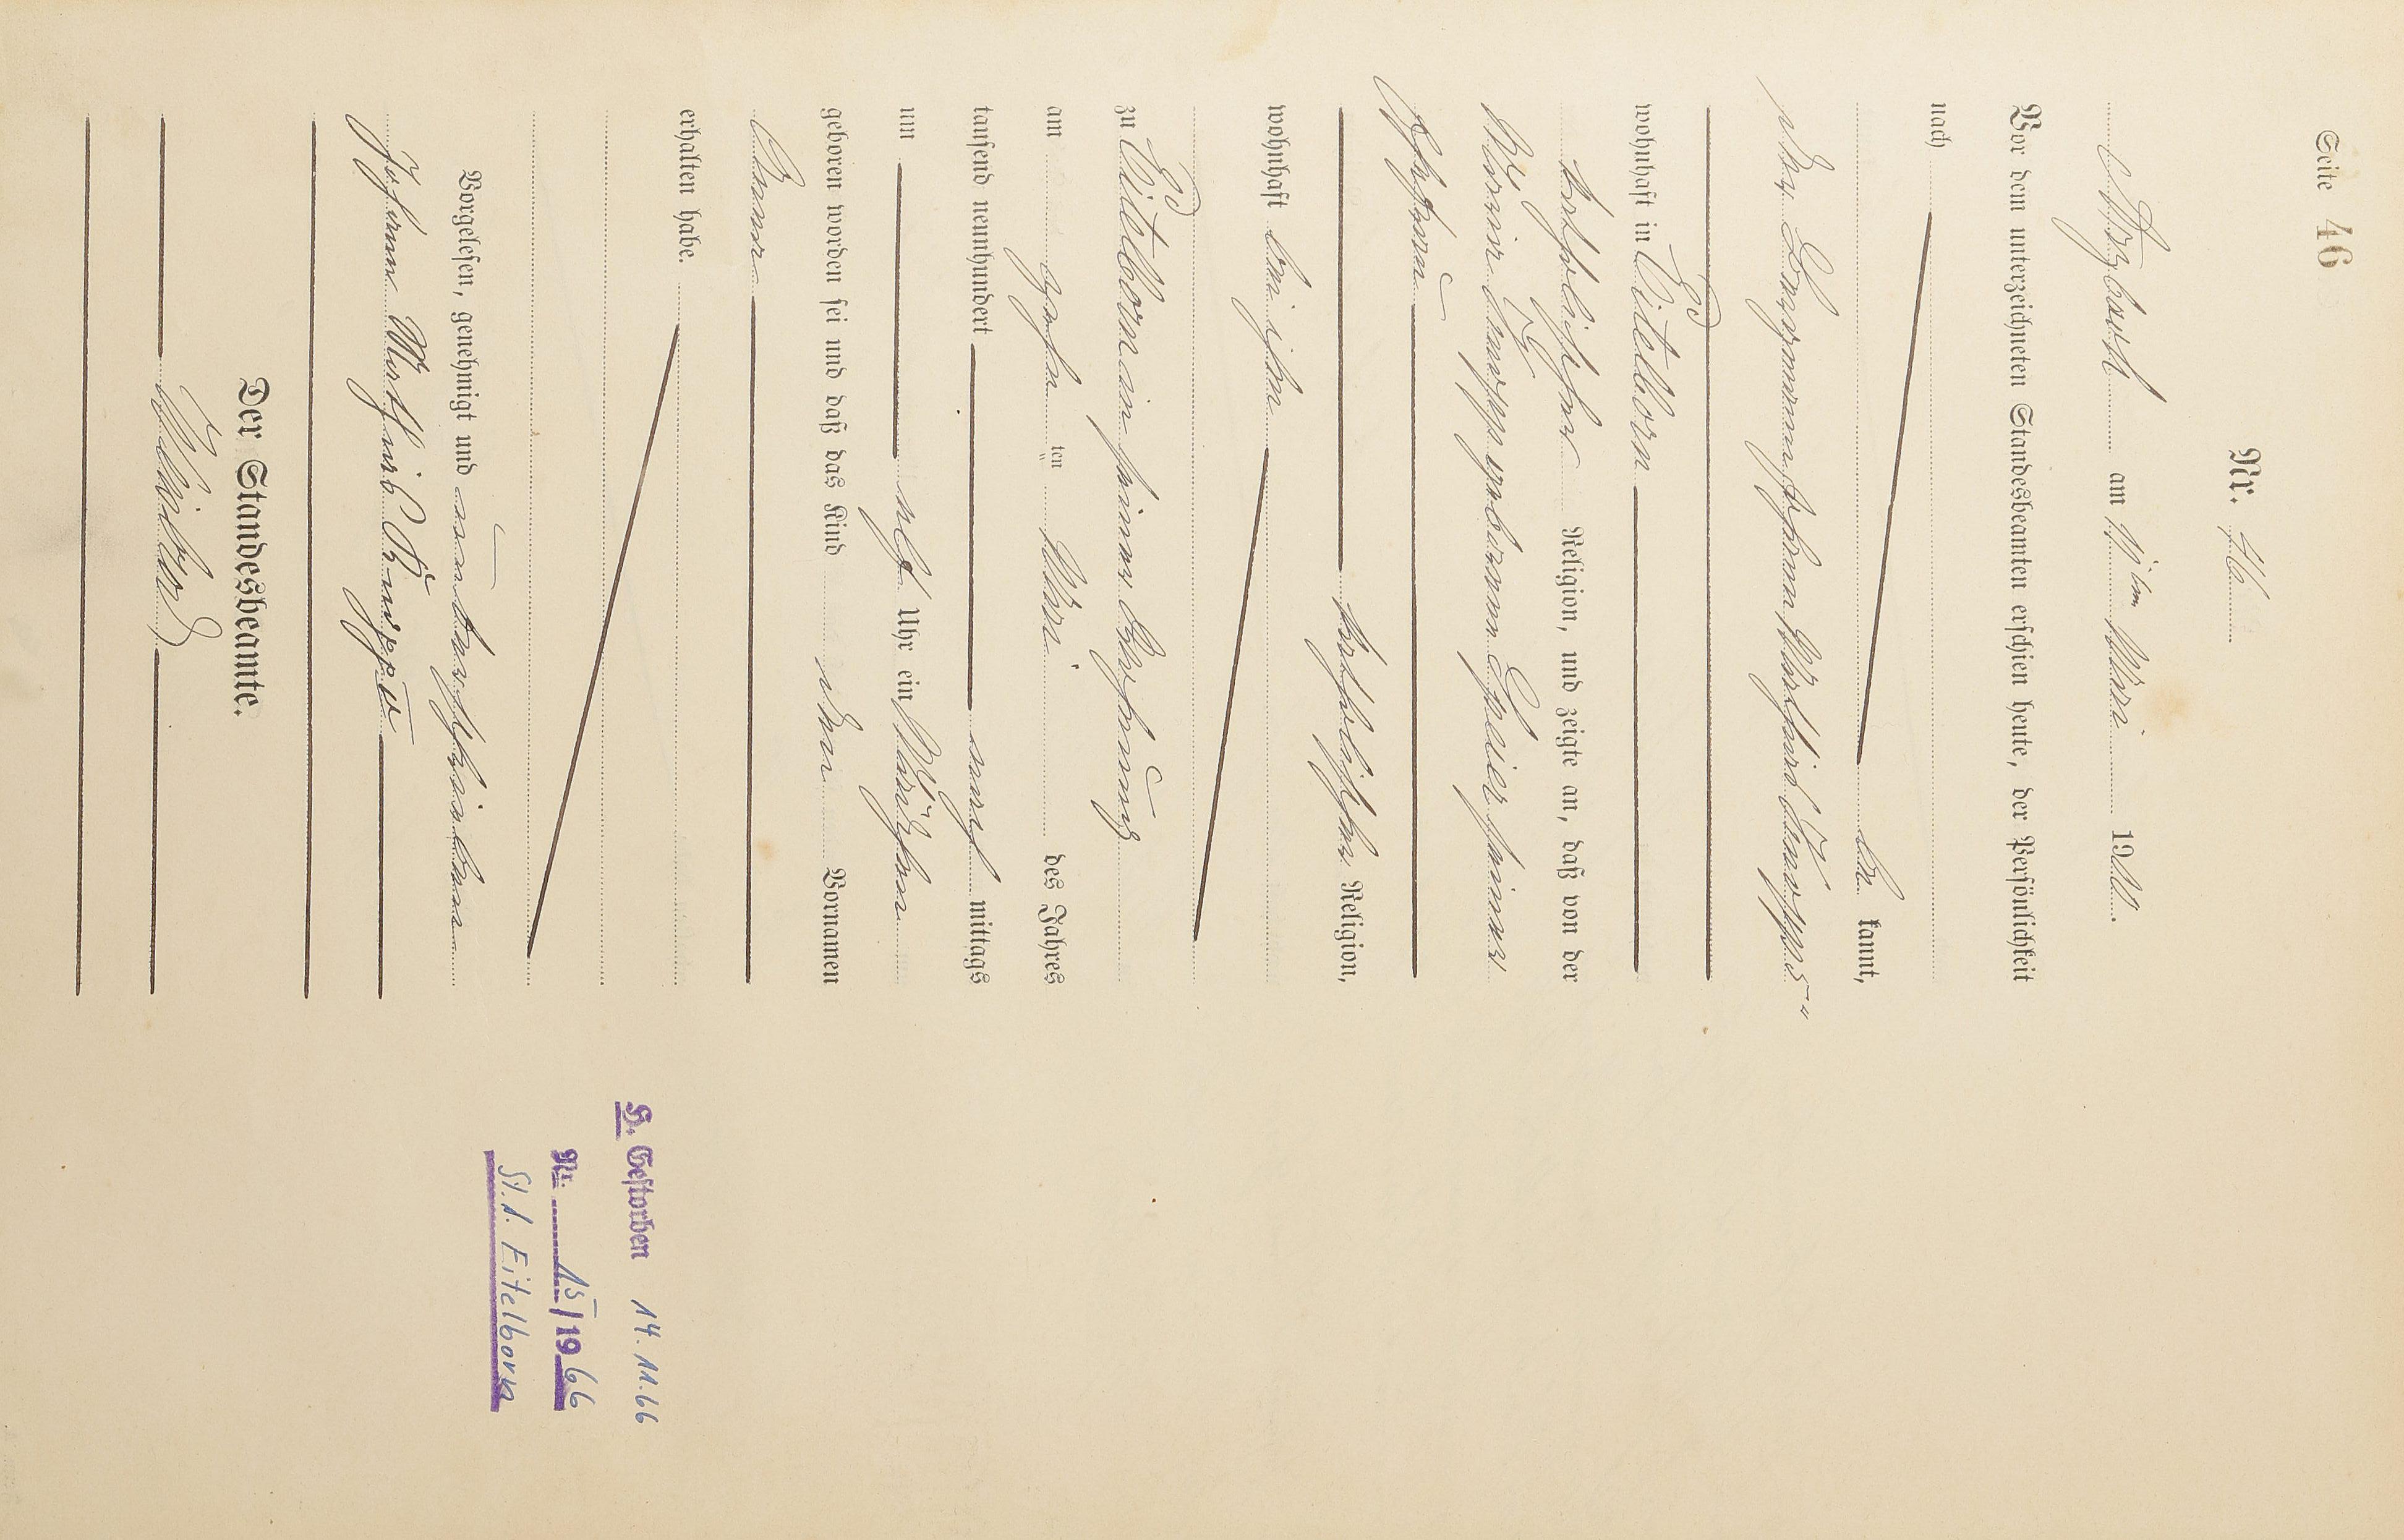 Seite 46
Nr. 46
Arzbach am 11ten Mai 19
Vor dem unterzeichneten Standesbeamten erschien heute, der Persönlichkeit
nach
be kannt,
der Bergmann Johann Mathias Knopp
wohnhaft in Eitelborn
katholischer Religion, und zeigte an, daß von der
Maria Knopp geborenen seiner
Ehefrau
katholischer Religion,
wohnhaft bei ihm
zu Eitelborn in seiner Wohnung
am zehn ten Mai des Jahres
tausend neunhundert nach mittags
um elf Uhr ein Mädchen
geboren worden sei und daß das Kind den Vornamen
Anna
erhalten habe.
Vorgelesen, genehmigt und unterschrieben
Johann Mathias
Der Standesbeamte.
H. Gestorben 14.11.66
Nr. 15/1966
St.A. Eitelborn